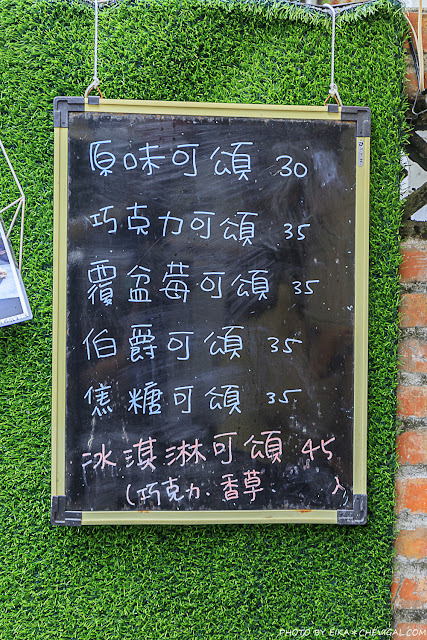 原味可頌 30
巧克力可頌 35
覆盆莓可頌 35
伯爵可頌 35
焦糖可頌 35
冰淇淋可頌 45
(巧克力、香草 )
PHOTO BY EIKA★CHENIGAL.COM